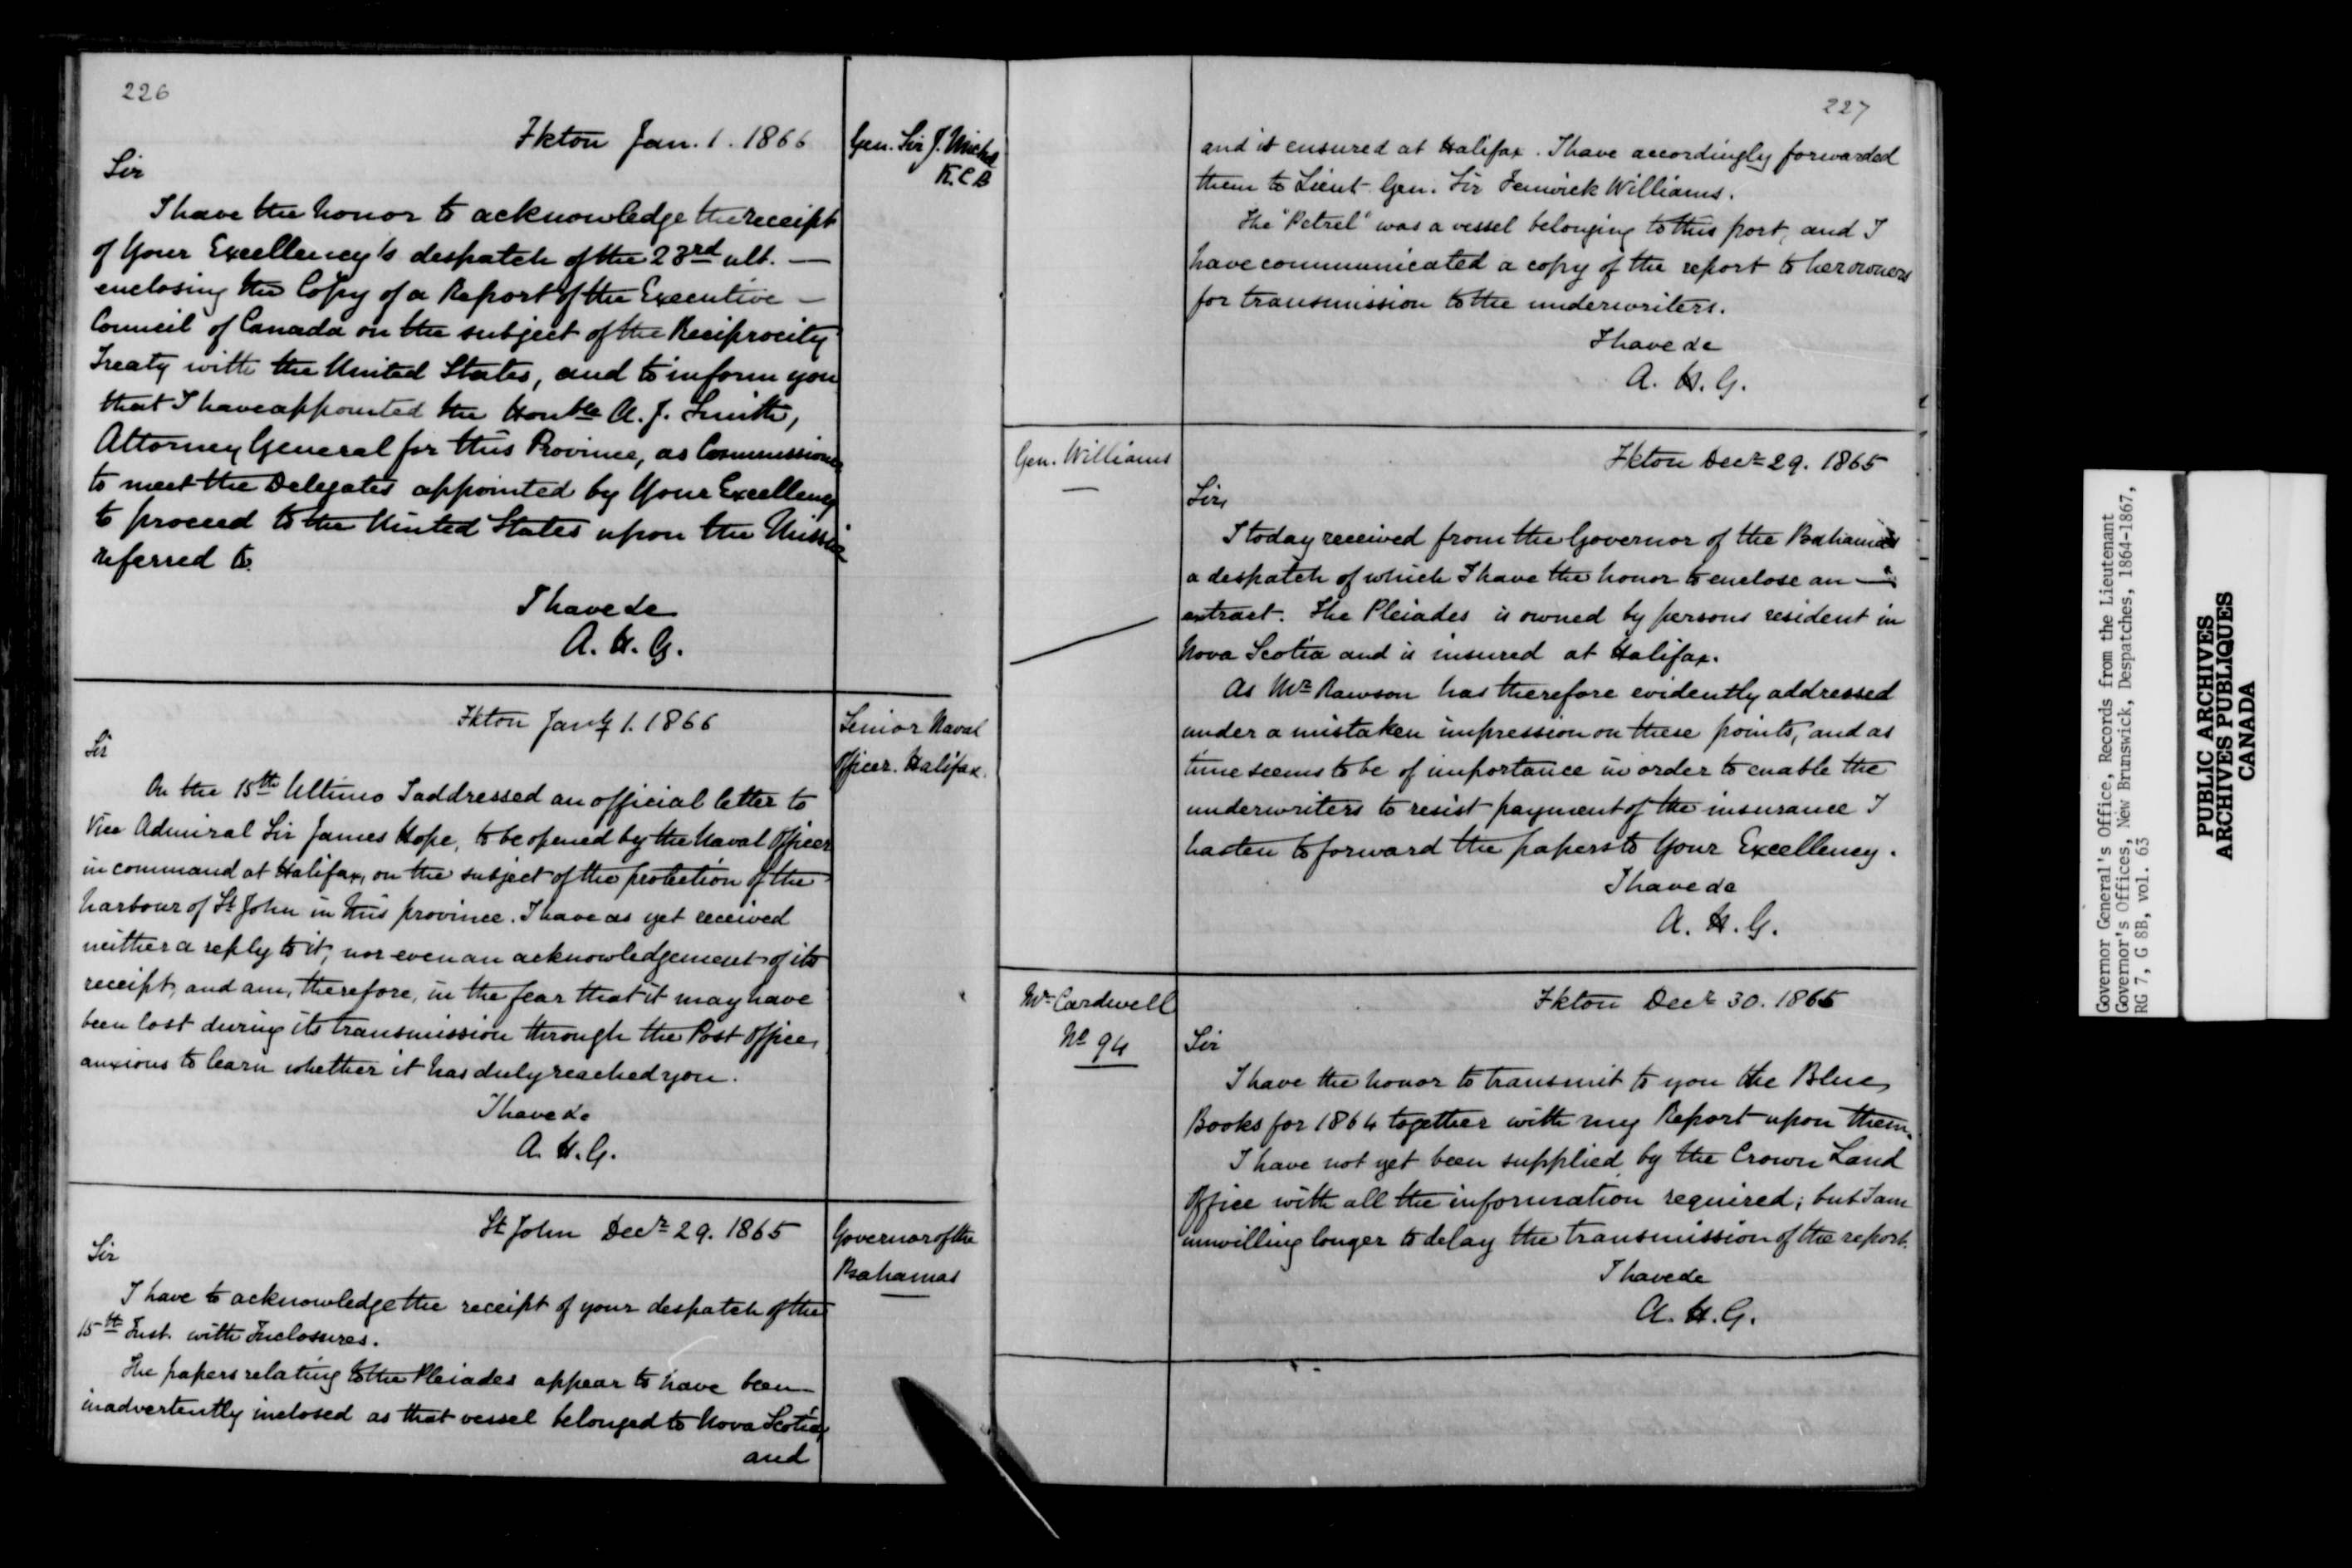 226
Fkton Jan. 1. 1866
Gen. Sir J. Michel
K.C.B
Sir
I have the honor to acknowledge the receipt
of Your Excellency's despatch of the 23rd ult. —
enclosing the Copy of a Report of the Executive —
Council of Canada on the subject of the Reciprocity
Treaty with the United States, and to inform you
that I have appointed the Honble A. J. Smith,
Attorney General for this Province, as Commissioner
to meet the Delegates appointed by Your Excellency
to proceed to the United States upon the Mission
referred to.
I have &c
A. H. G.
Fkton Jany 1. 1866
Senior Naval
Officer. Halifax.
Sir
On the 15th Ultimo I addressed an official letter to
Vice Admiral Sir James Hope, to be opened by the Naval Officer
in command at Halifax, on the subject of the protection of the
harbour of St John in this province. I have as yet received
neither a reply to it, nor even an acknowledgement of its
receipt, and am, therefore, in the fear that it may have
been lost during its transmission through the Post Office,
anxious to learn whether it has duly reached you.
I have &c
A. H. G.
St John Decr 29. 1865
Governor of the
Bahamas
Sir
I have to acknowledge the receipt of your despatch of the
15th Inst. with Inclosures.
The papers relating to the Pleiades appear to have been
inadvertently inclosed as that vessel belonged to Nova Scotia,
and
227
and is ensured at Halifax. I have accordingly forwarded
them to Lieut. Gen. Sir Fenwick Williams.
The "Petrel" was a vessel belonging to this port, and I
have communicated a copy of the report to her owners
for transmission to the underwriters.
I have &c
A. H. G.
Gen. Williams
Fkton Decr 29. 1865
Sir,
I today received from the Governor of the Bahamas
a despatch of which I have the honor to enclose an —
extract. The Pleiades is owned by persons resident in
Nova Scotia and is insured at Halifax.
As Mr Rawson has therefore evidently addressed
under a mistaken impression on these points, and as
time seems to be of importance in order to enable the
underwriters to resist payment of the insurance I
hasten to forward the papers to Your Excellency.
I have &c
A. H. G.
Mr Cardwell
No 94
Fkton Decr 30. 1865
Sir
I have the honor to transmit to you the Blue
Books for 1864 together with my Report upon them.
I have not yet been supplied by the Crown Land
Office with all the information required; but I am
unwilling longer to delay the transmission of the report.
I have &c
A. H. G.
Governor General's Office, Records from the Lieutenant
Governor's Offices, New Brunswick, Despatches, 1864-1867,
RG 7, G 8B, vol. 63
PUBLIC ARCHIVES
ARCHIVES PUBLIQUES
CANADA